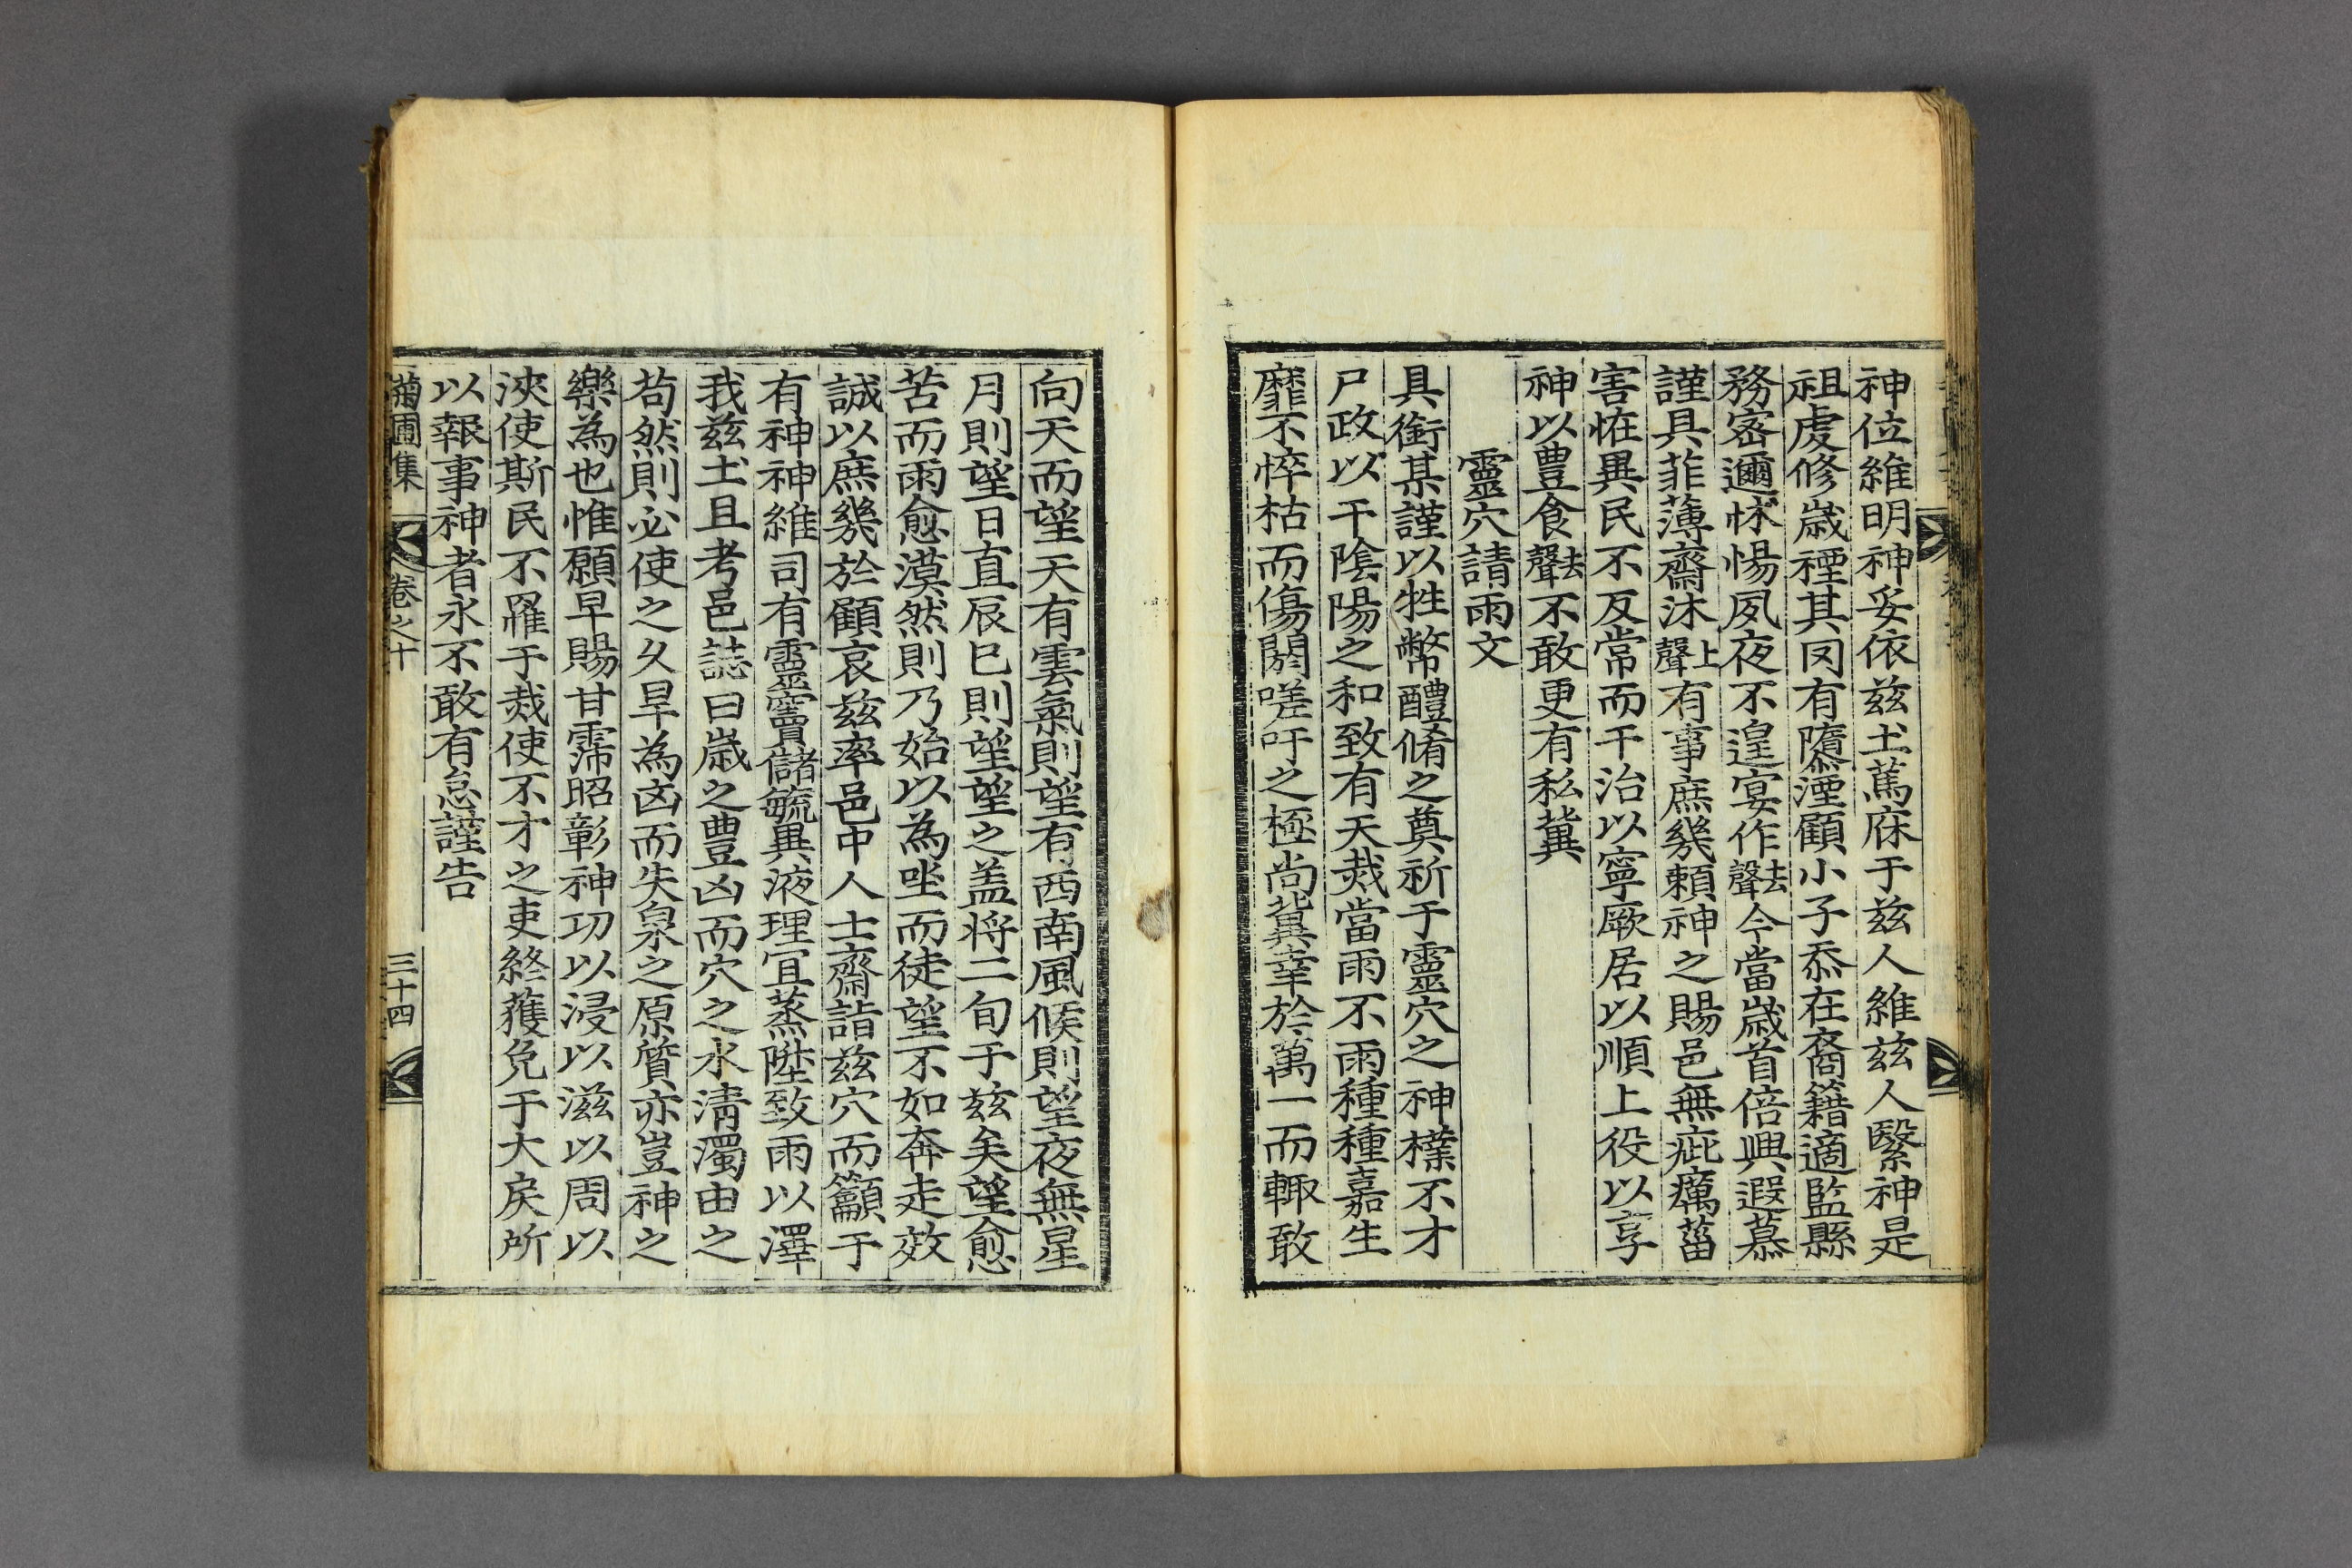 神位維明神妥依玆土蔫庥于玆人維玆人緊神是
祖虔修歲禋其罔有隳湮顧小子忝在裔籍適監縣
務密邇怵惕夙夜不遑宴作去聲今當歲首倍興遐慕
謹具菲薄齋沐上聲有事庶幾賴神之賜邑無疵癘菑
害恠異民不反常而干治以寧厥居以順上役以享
神以豊食去聲不敢更有私冀
靈穴請雨文
具銜某謹以牲幣醴脩之奠祈于靈穴之神樸不才
尸政以干陰陽之和致有天烖當雨不雨種種嘉生
靡不悴枯而傷閼嗟吁之極尚冀幸於萬一而輙敢
向天而望天有雲氣則望有西南風候則望夜無星
月則望日直辰巳則望望之盖将二旬于玆矣望愈
苦而雨愈漠然則乃始以為坐而徒望不如奔走效
誠以庶幾於顧哀玆率邑中人士齋詣玆穴而籲于
有神神維司有靈竇儲毓異液理宜蒸陞致雨以澤
我玆土且考邑誌曰歲之豊凶而穴之水清濁由之
苟然則必使之久旱為凶而失泉之原質亦豈神之
樂為也惟願早賜甘霈昭彰神功以浸以滋以周以
浹使斯民不罹于烖使不才之吏終獲免于大戾所
以報事神者永不敢有怠謹告
菊圃集 卷之十 三十四